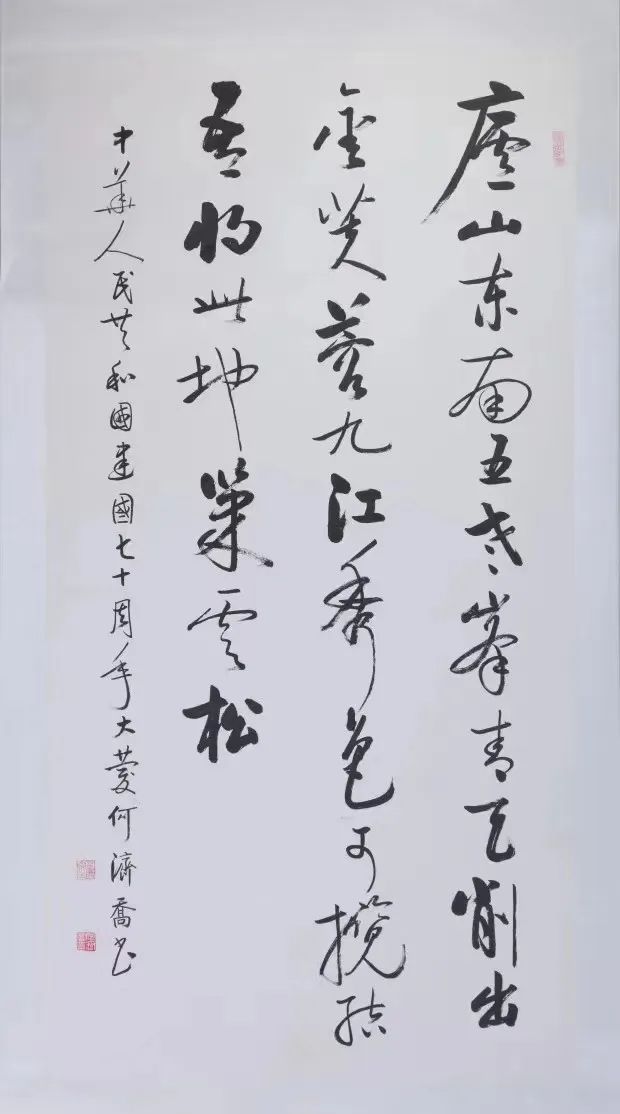 廬山东南五老峯青天削出
金芙蓉九江秀色可攬結
吾将此地巢雲松
中華人民共和國建國七十周年大慶何濟喬书